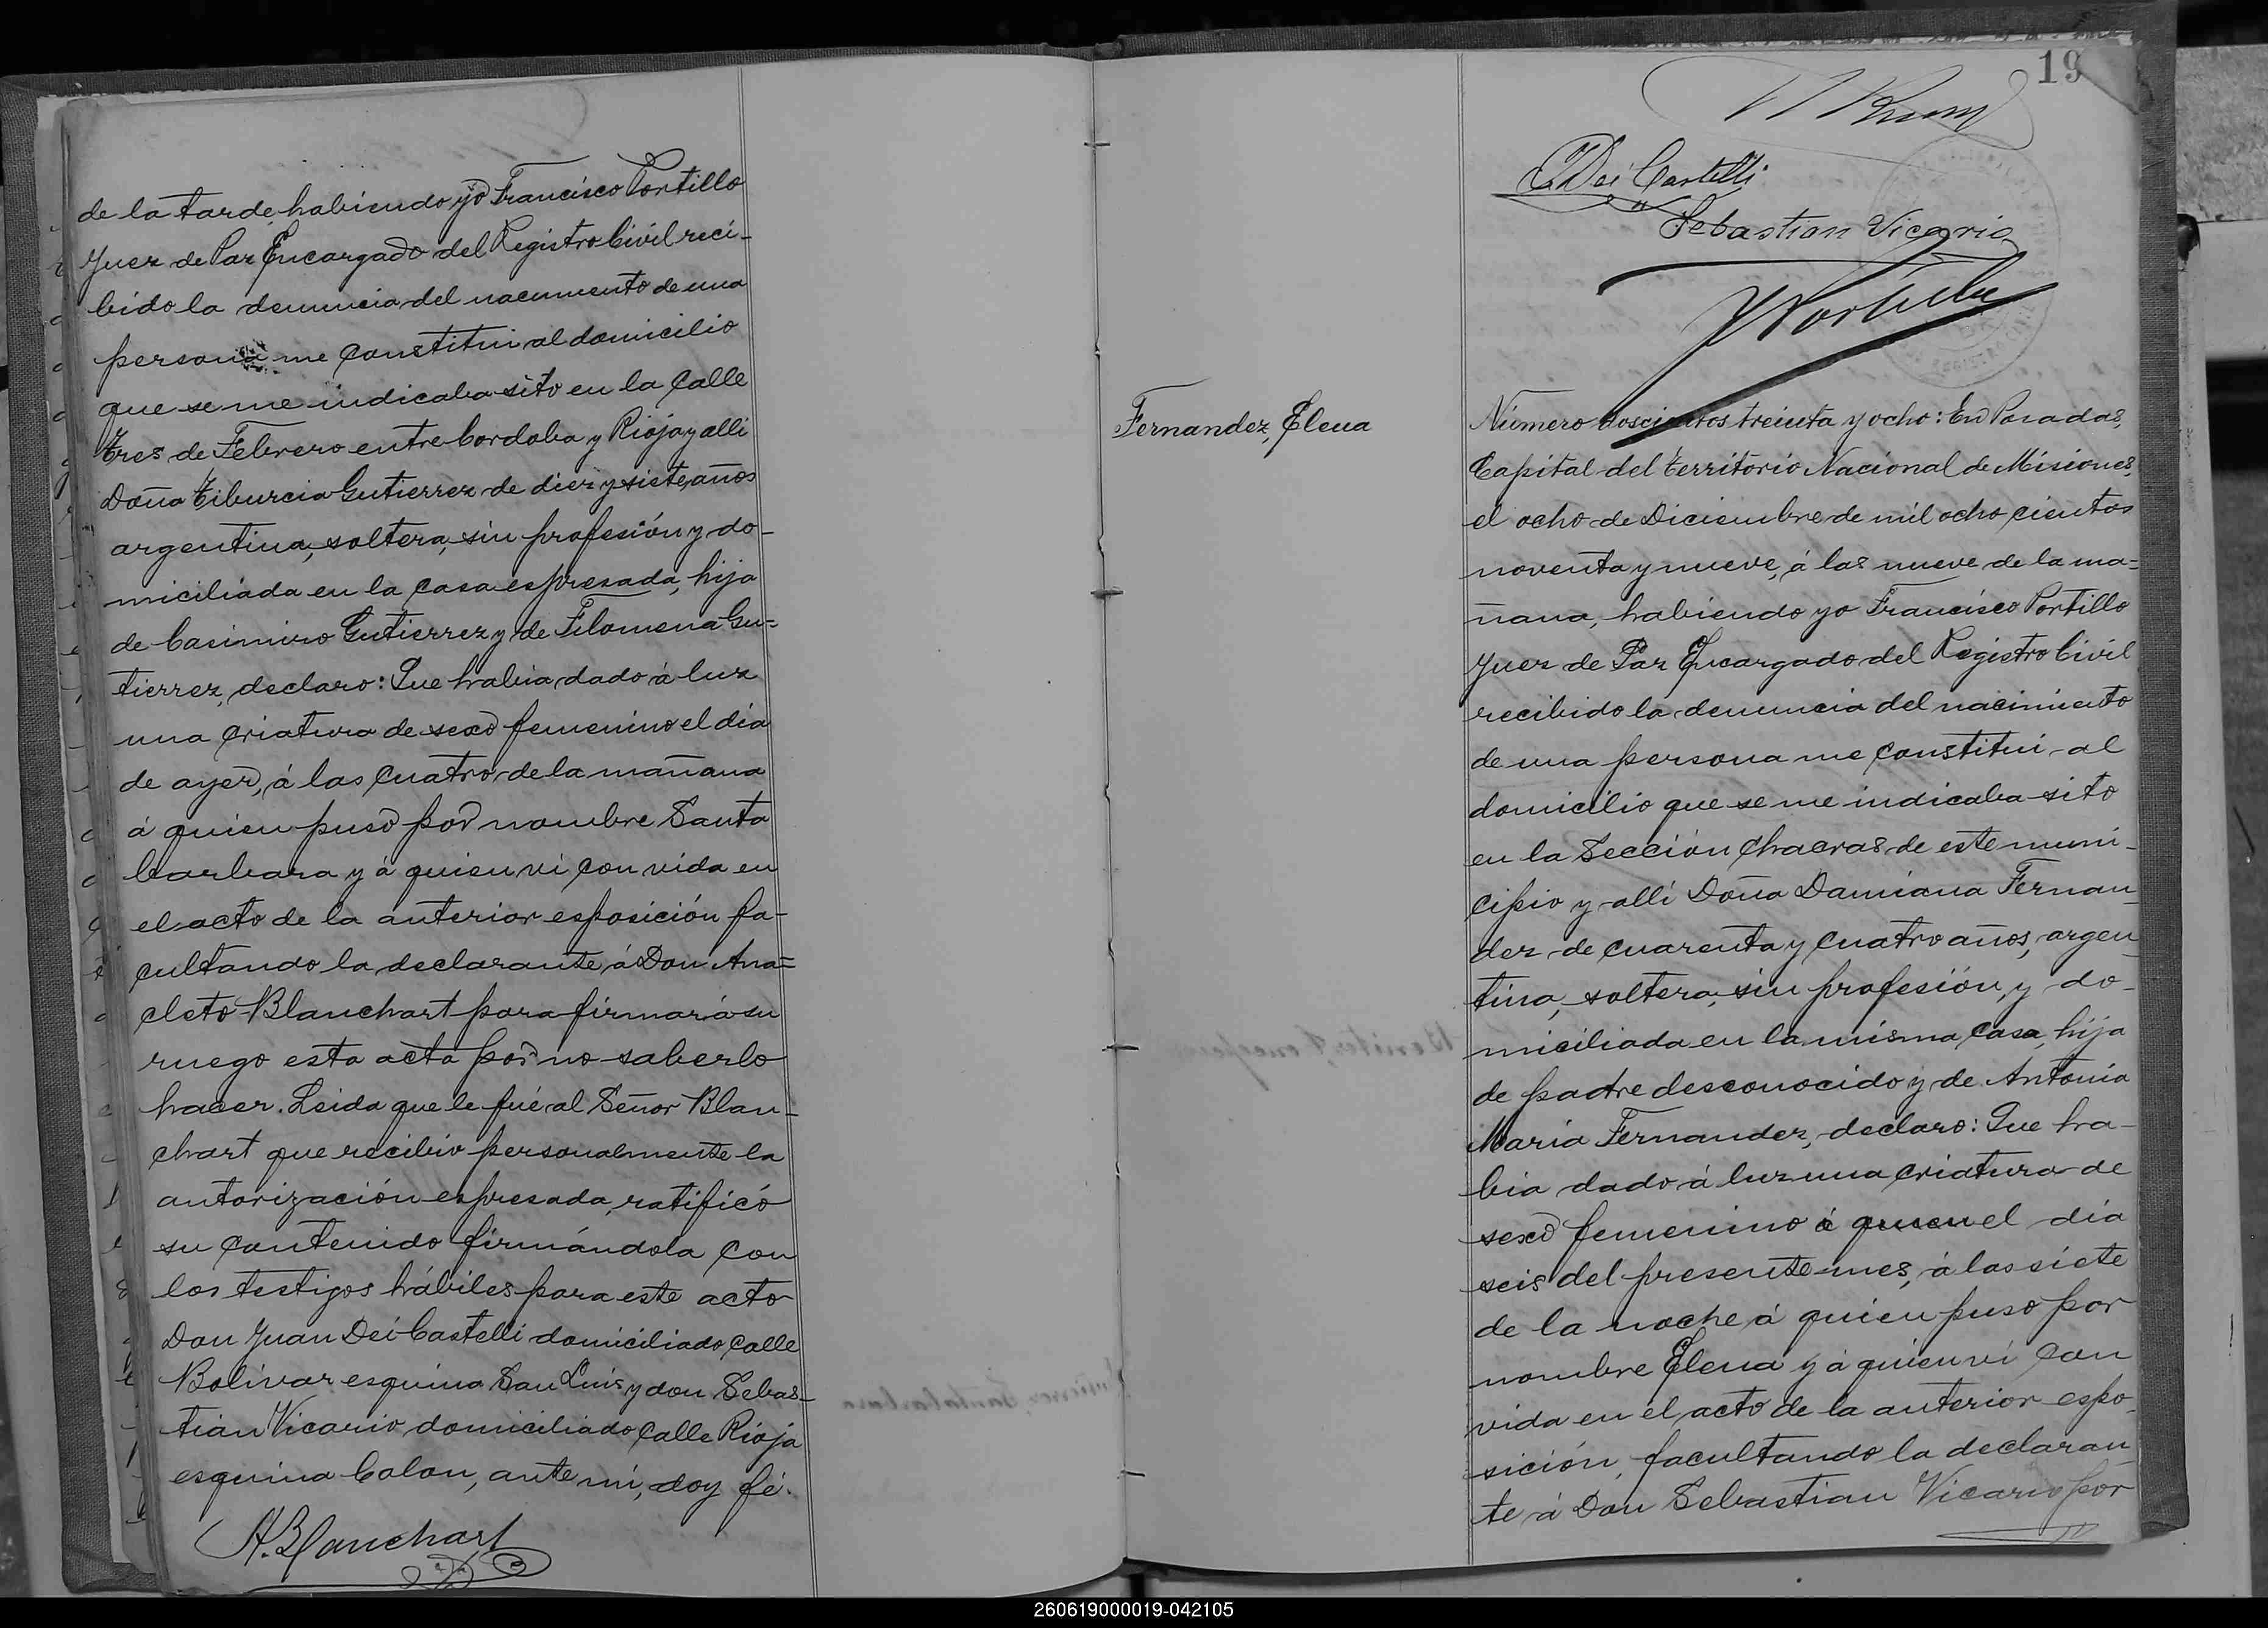 de la tarde, habiendo yo Francisco Portillo
Juez de Paz Encargado del Registro Civil reci-
bido la denuncia del nacimiento de una
persona me constitui al domicilio
que se me indicaba sito en la Calle
Tres de Febrero entre Cordoba y Rioja y alli
Doña Tiburcia Gutierrez de diez y siete años
argentina, soltera, sin profesión y do-
miciliada en la casa espresada, hija
de Casimiro Gutierrez y de Filomena Gu=
tierrez, declaro: Que habia dado á luz
una criatura de sexo femenino el dia
de ayer, á las cuatro de la mañana
á quien puso por nombre Santa
barbara y á quien vi con vida en
el acto de la anterior esposición fa-
cultando la declarante á Don Ana=
cleto Blanchart para firmar á su
ruego esta acta por no saberlo
hacer. Leida que le fué al Señor Blan-
chart que recibio personalmente la
autorización espresada, ratificó
su contenido firmándola con
los testigos hábiles para este acto
Don Juan Dei Castelli domiciliado calle
Bolivar esquina San Luis y don Sebas-
tian Vicario domiciliado Calle Rioja
esquina Colon, ante mi, doy fé.
A. Blanchart
19
Dei Castelli
Sebastian Vicario
Portillo
Fernandez, Elena
Número doscientos treinta y ocho: En Posadas,
Capital del territorio Nacional de Misiones,
el ocho de Diciembre de mil ocho cientos
noventa y nueve, á las nueve de la ma=
ñana, habiendo yo Francisco Portillo
Juez de Paz Encargado del Registro Civil
recibido la denuncia del nacimiento
de una persona me constitui al
domicilio que se me indicaba sito
en la Sección Chacras de este muni-
cipio y alli Doña Damiana Fernan-
dez de cuarenta y cuatro años, argen-
tina, soltera, sin profesión, y do-
miciliada en la misma casa, hija
de padre desconocido y de Antonia
Maria Fernandez, declaro: Que ha-
bia dado á luz una criatura de
sexo femenino á quien el dia
seis del presente mes, á las siete
de la noche á quien puso por
nombre Elena y á quien vi con
vida en el acto de la anterior espo-
sición, facultando la declaran-
te á Don Sebastian Vicario por
260619000019-042105